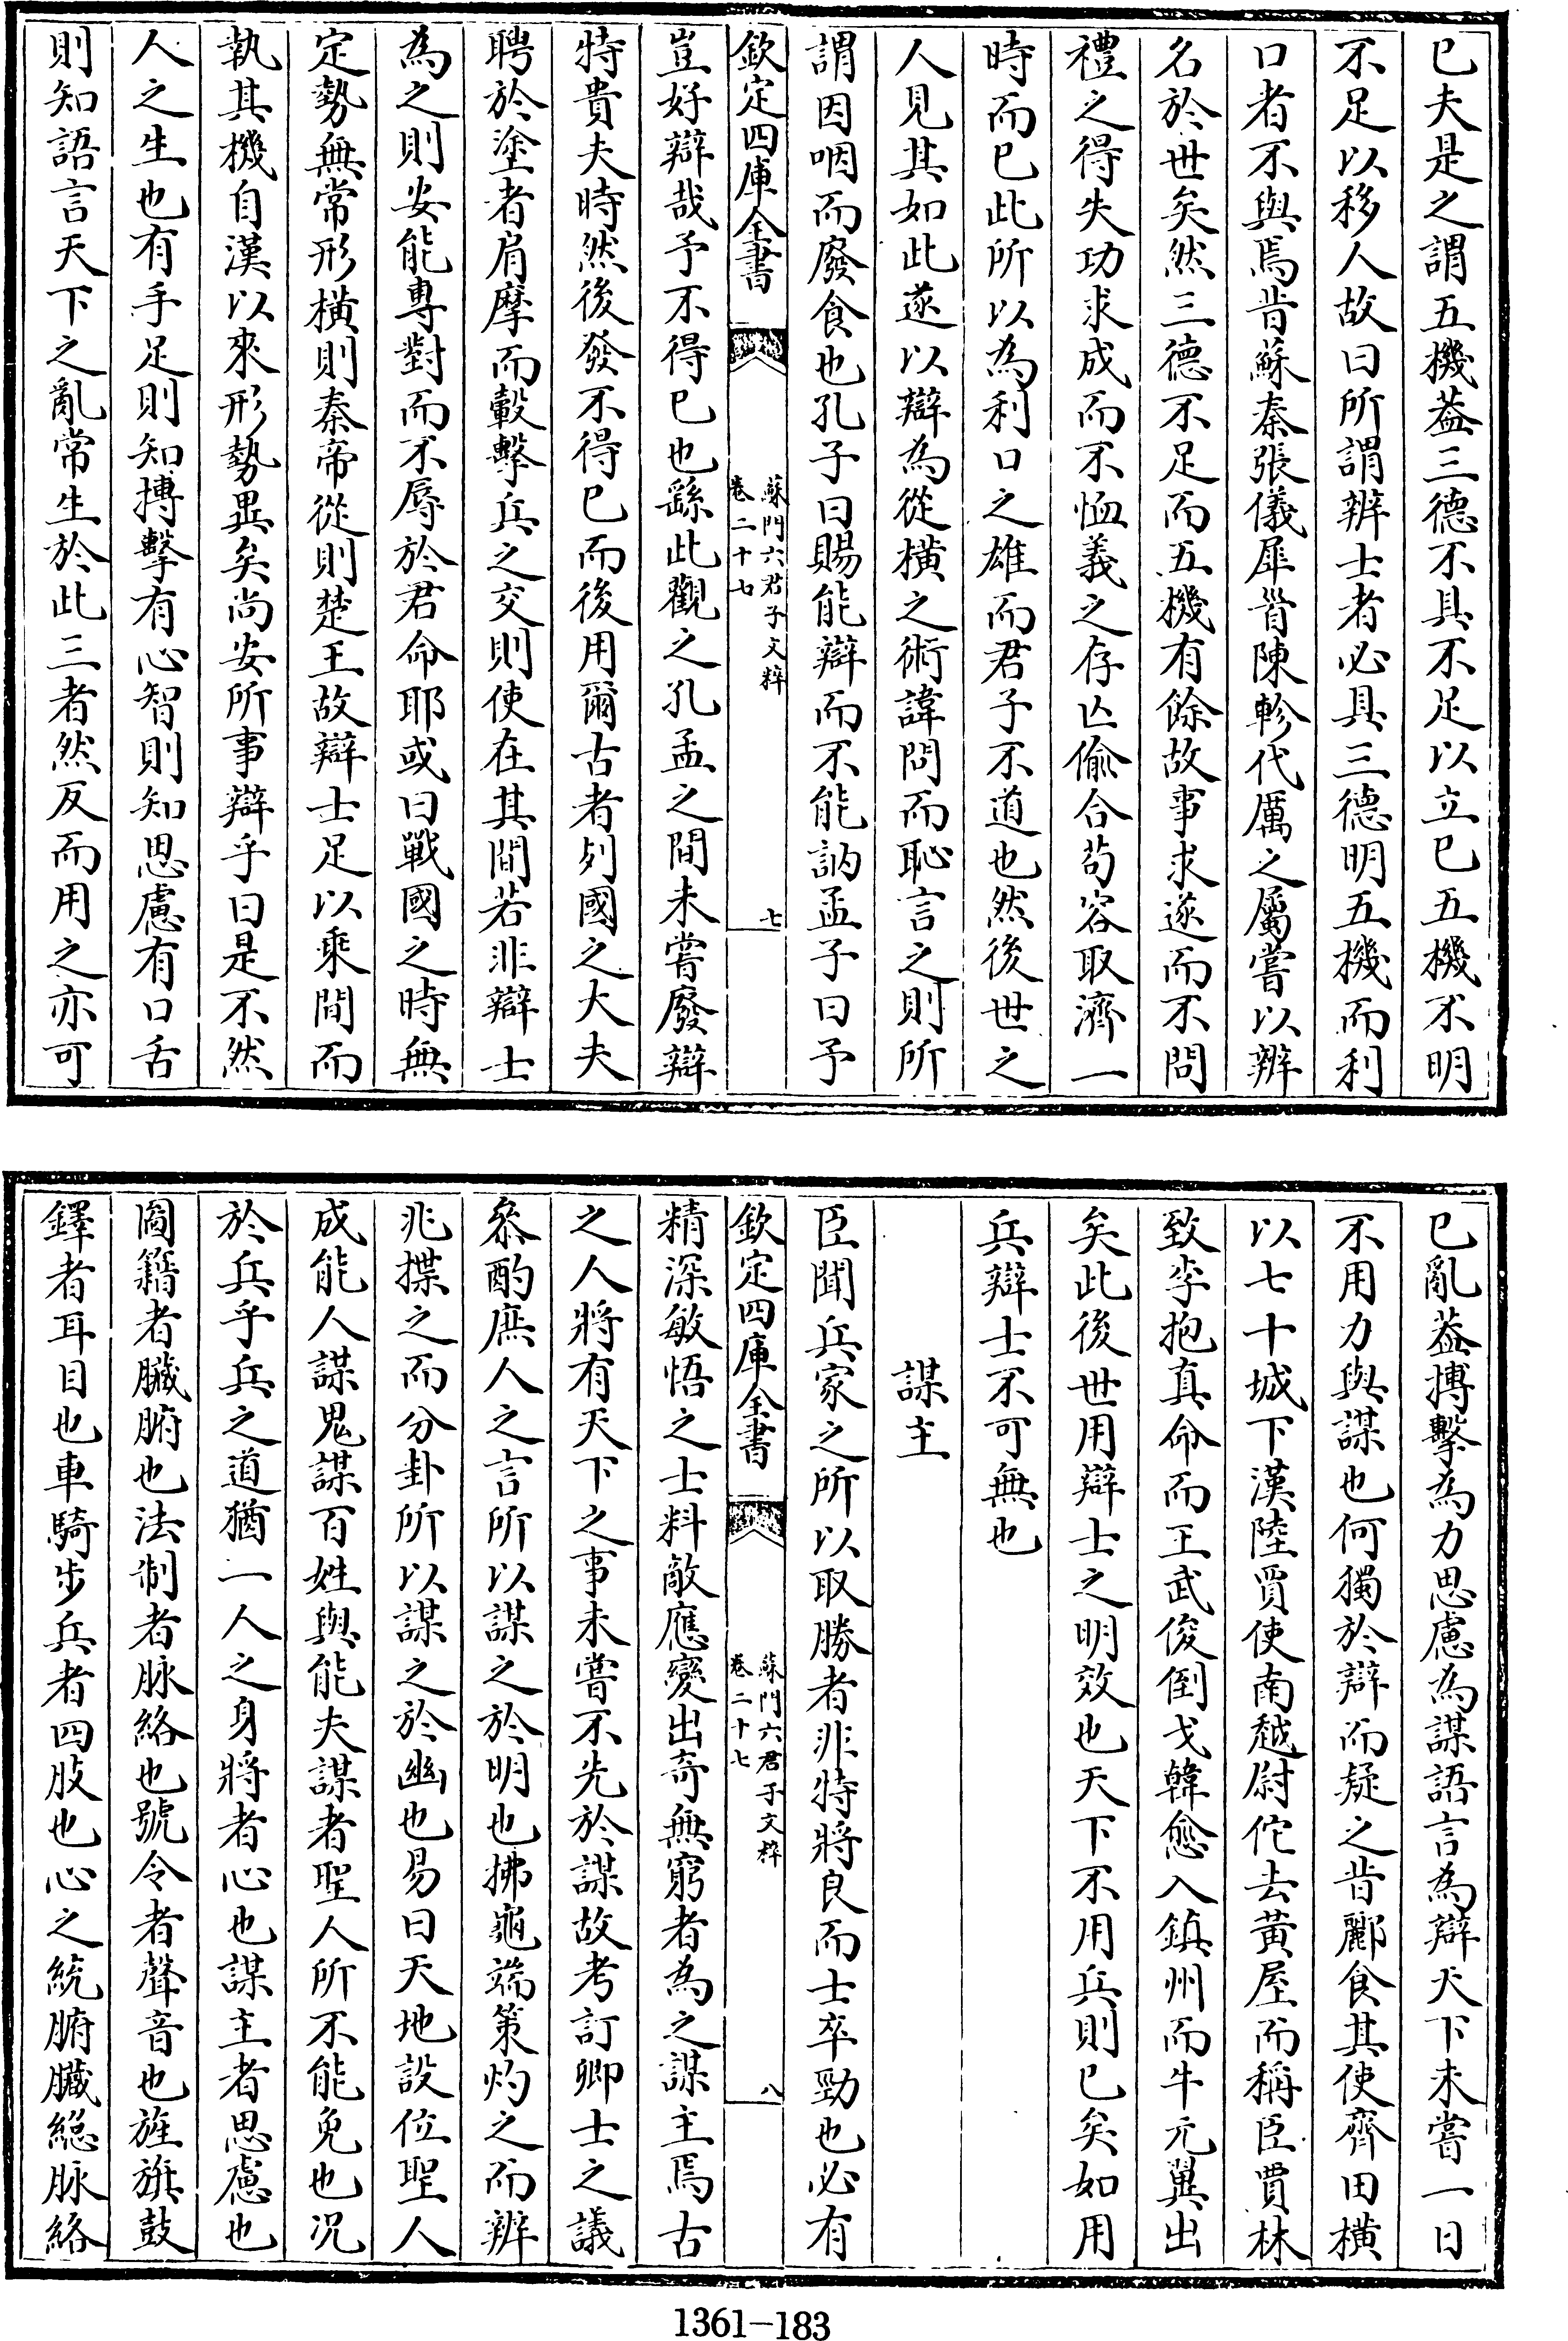 已夫是之謂五機葢三德不具不足以立已五機不明
不足以移人故曰所謂辨士者必具三德明五機而利
口者不與焉昔蘇秦張儀犀首陳軫代厲之屬嘗以辨
名於世矣然三德不足而五機有餘故事求遂而不問
禮之得失功求成而不恤義之存亡偷合苟容取濟一
時而已此所以為利口之雄而君子不道也然後世之
人見其如此遂以辯為從橫之術諱問而恥言之則所
謂因咽而廢食也孔子曰賜能辯而不能訥孟子曰予
欽定四庫全書
蘇門六君子文粹
卷二十七
七
豈好辯哉予不得已也繇此觀之孔孟之間未嘗廢辯
特貴夫時然後發不得已而後用爾古者列國之大夫
聘於塗者肩摩而轂擊兵之交則使在其間若非辯士
為之則安能專對而不辱於君命耶或曰戰國之時無
定勢無常形橫則秦帝從則楚王故辯士足以乘間而
執其機自漢以來形勢異矣尚安所事辯乎曰是不然
人之生也有手足則知搏擊有心智則知思慮有口舌
則知語言天下之亂常生於此三者然反而用之亦可
已亂葢搏擊為力思慮為謀語言為辯天下未嘗一日
不用力與謀也何獨於辯而疑之昔酈食其使齊田橫
以七十城下漢陸賈使南越尉佗去黃屋而稱臣賈林
致李抱真命而王武俊倒戈韓愈入鎮州而牛元翼出
矣此後世用辯士之明效也天下不用兵則已矣如用
兵辯士不可無也
謀主
臣聞兵家之所以取勝者非特將良而士卒勁也必有
欽定四庫全書
蘇門六君子文粹
卷二十七
八
精深敏悟之士料敵應變出奇無窮者為之謀主焉古
之人將有天下之事未嘗不先於謀故考訂卿士之議
叅酌庶人之言所以謀之於明也拂龜端策灼之而辨
兆揲之而分卦所以謀之於幽也易曰天地設位聖人
成能人謀鬼謀百姓與能夫謀者聖人所不能免也况
於兵乎兵之道猶一人之身將者心也謀主者思慮也
圖籍者臟腑也法制者脉絡也號令者聲音也旌旗鼓
鐸者耳目也車騎步兵者四肢也心之統腑臟緫脉絡
1361-183